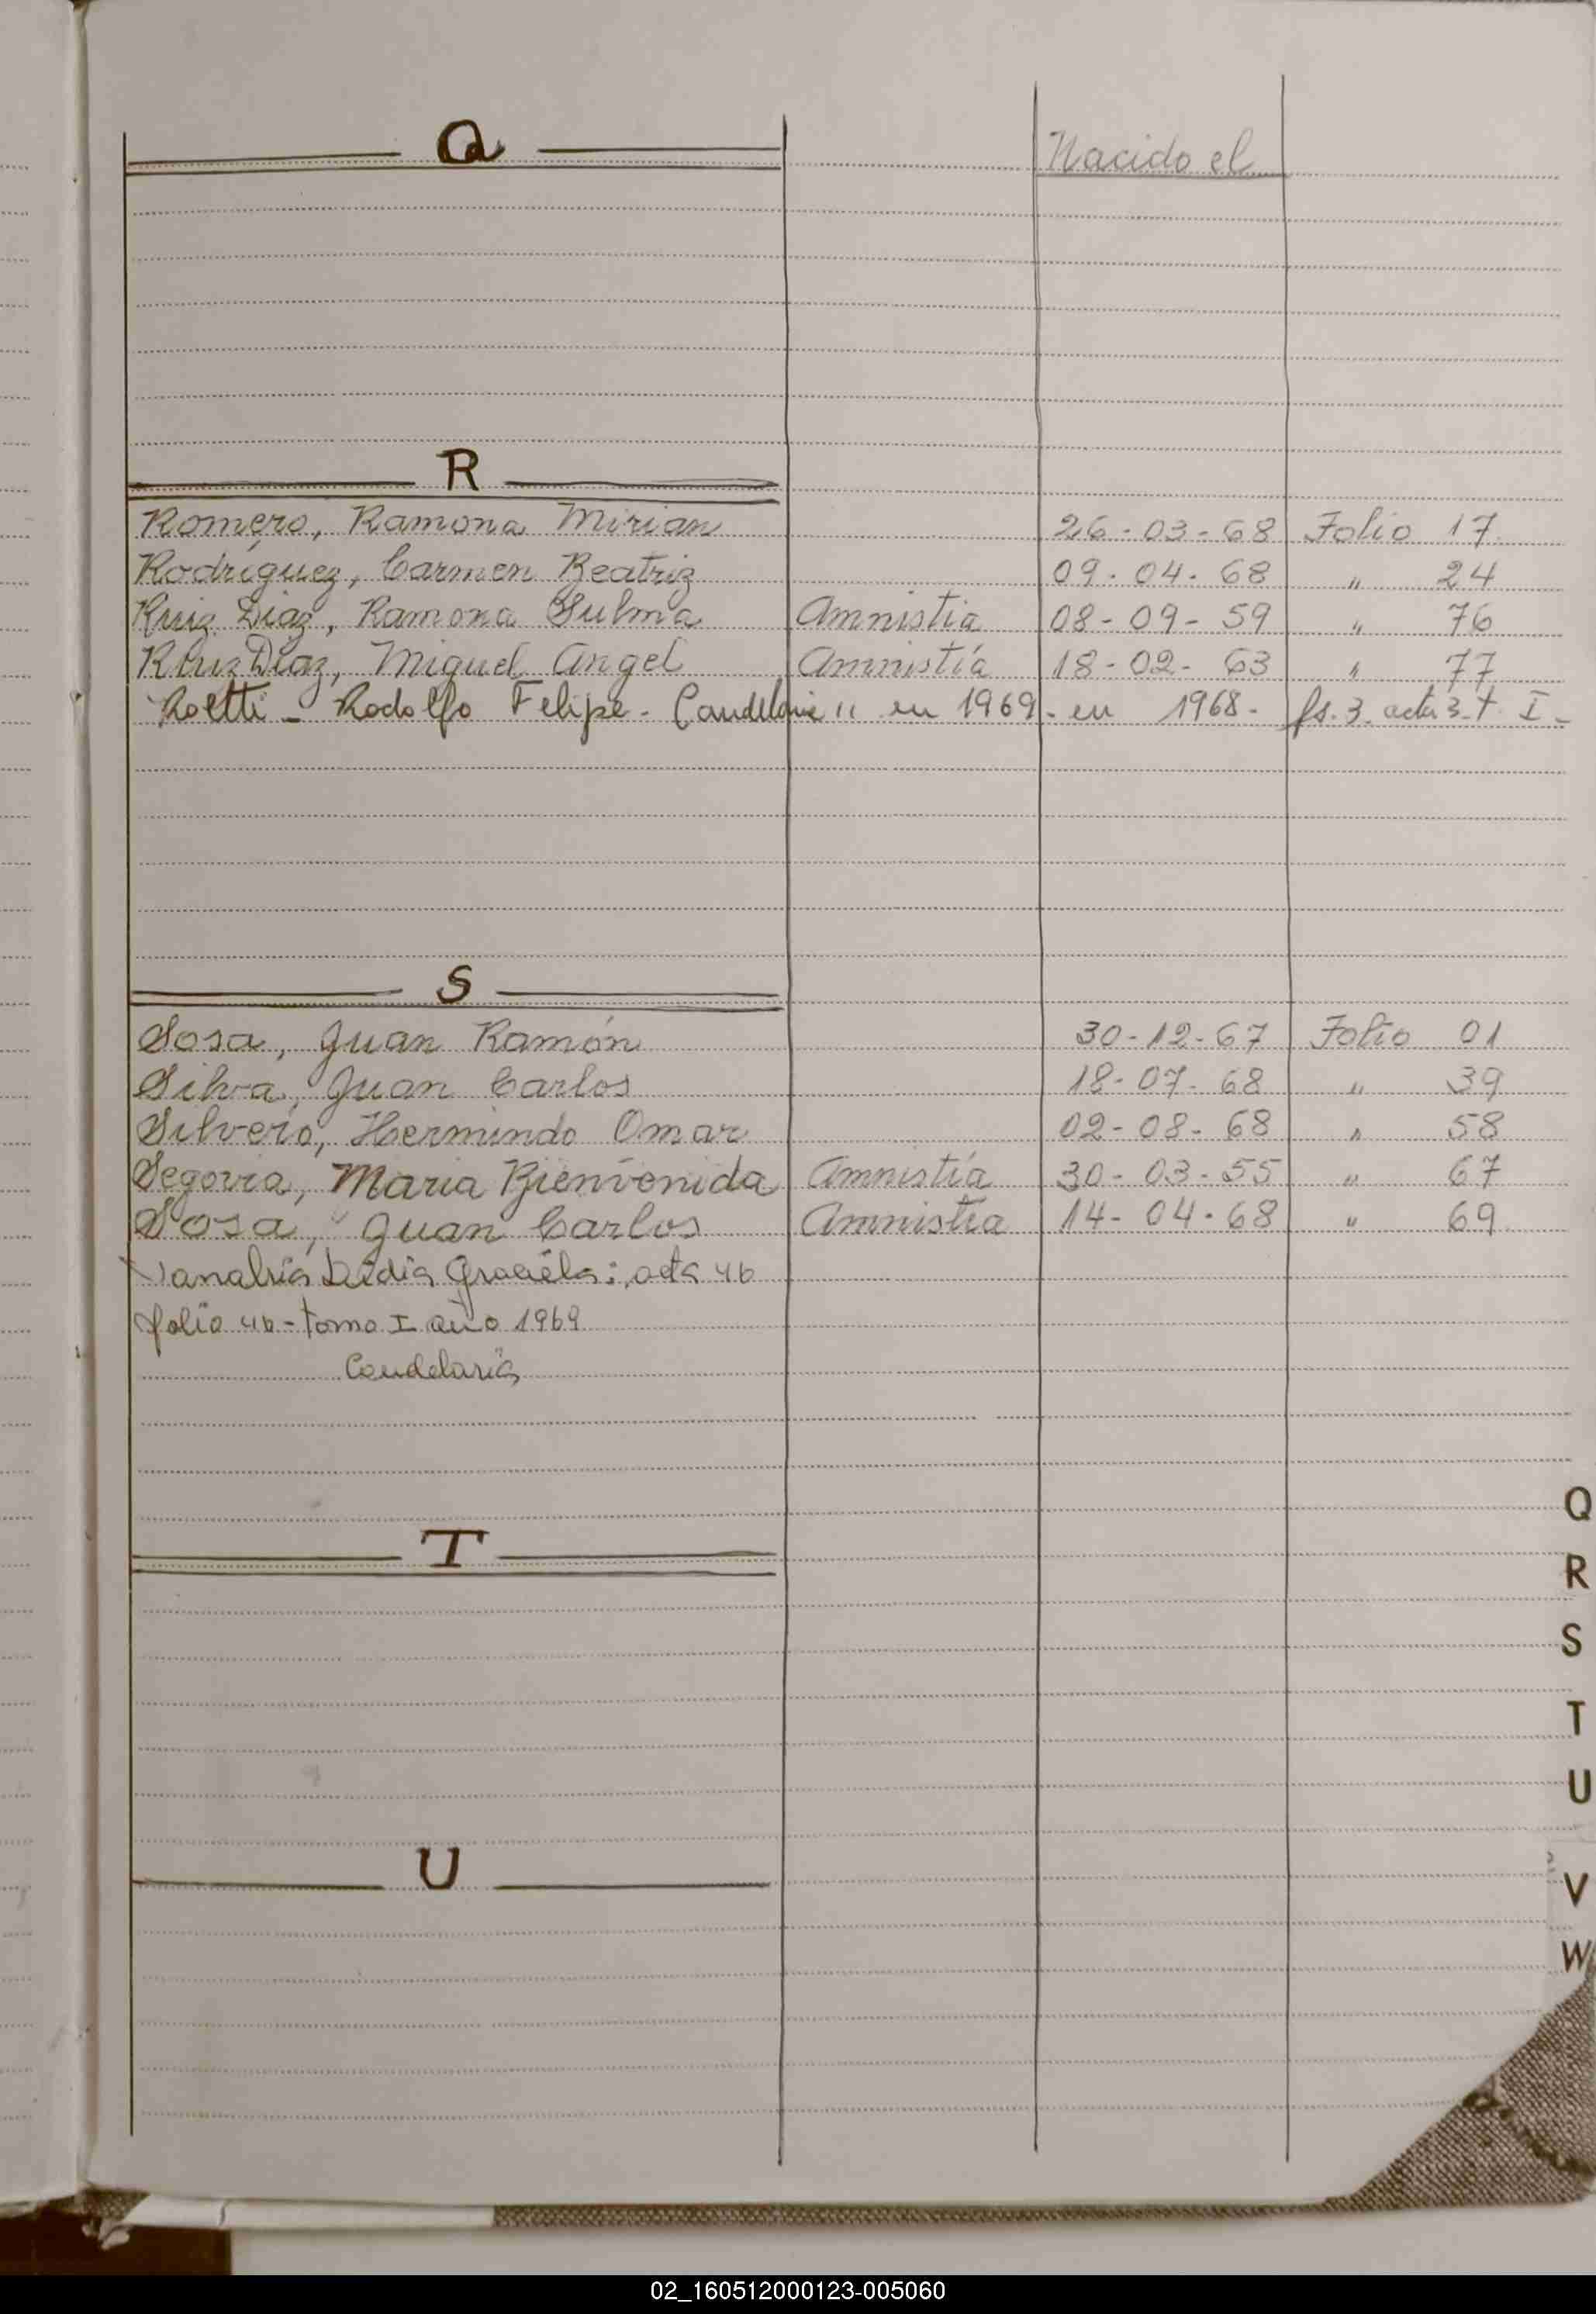 Q
Nacido el
R
Romero, Ramona Mirian 26-03-68 Folio 17
Rodríguez, Carmen Beatriz 09-04-68 " 24
Ruiz Diaz, Ramona Sulma Amnistia 08-09-59 " 76
Ruiz Diaz, Miguel Angel Amnistía 18-02-63 " 77
Roetti - Rodolfo Felipe - Candelaria en 1969 - en 1968 - fs. 3 acta 3 - t I -
S
Sosa, Juan Ramón 30-12-67 Folio 01
Silva, Juan Carlos 18-07-68 " 39
Silvero, Hermindo Omar 02-08-68 " 58
Segovia, Maria Bienvenida Amnistía 30-03-55 " 67
Sosa, Juan Carlos Amnistia 14-04-68 " 69
Lidia Graciela: acta 46
folio 46 - tomo I año 1969
Candelaria
T
U
Q
R
S
T
U
V
W
02_160512000123-005060